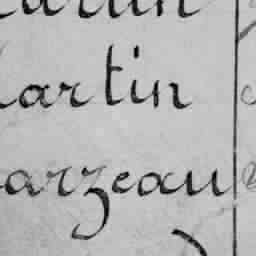 artin
artin
arzeau